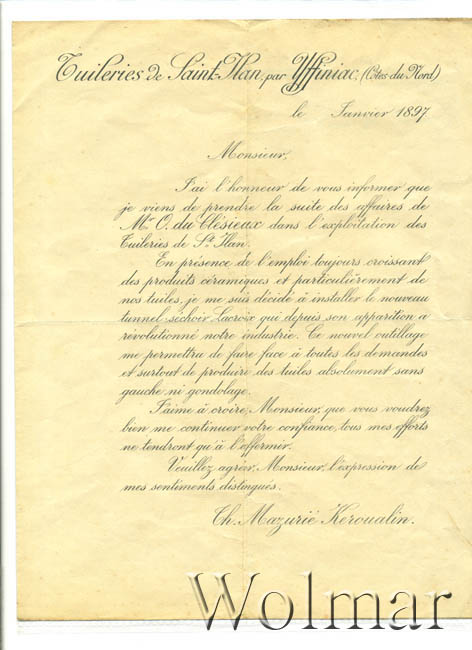 Tuileries de Saint-Ilan, par Yffiniac, (Côtes-du-Nord)
le Janvier 1897.
Monsieur,
J'ai l'honneur de vous informer que
je viens de prendre la suite des affaires de
Mr O. du Clésieux dans l'exploitation des
Tuileries de St Ilan.
En présence de l'emploi toujours croissant
des produits céramiques et particulièrement de
nos tuiles, je me suis décidé à installer le nouveau
tunnel-séchoir Lacroix qui depuis son apparition a
révolutionné notre industrie. Ce nouvel outillage
me permettra de faire face à toutes les demandes
et surtout de produire des tuiles absolument sans
gauche ni gondolage.
J'aime à croire, Monsieur, que vous voudrez
bien me continuer votre confiance, tous mes efforts
ne tendront qu'à l'affermir.
Veuillez agréer, Monsieur, l'expression de
mes sentiments distingués.
Th. Mazurié Keroualin.
Wolmar